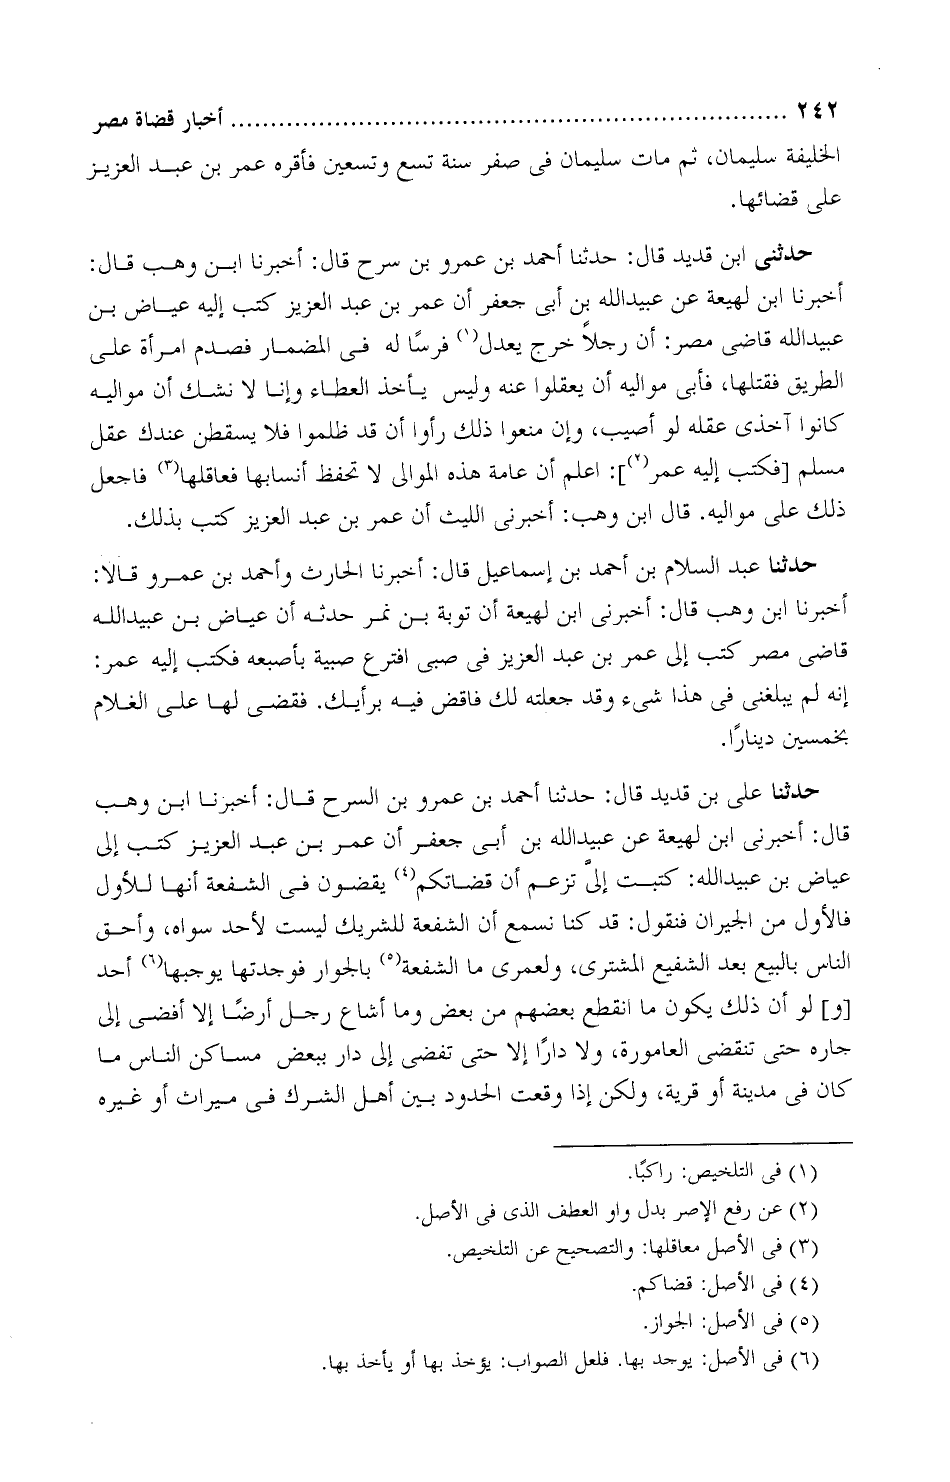 ٢٤٢ .......................................................... أخبار قضاة مصر
الخليفة سليمان، ثم مات سليمان فى صفر سنة تسع وتسعين فأقره عمر بن عبد العزيز
على قضائها.
حدثنى ابن قديد قال: حدثنا أحمد بن عمرو بن سرح قال: أخبرنا ابن وهب قال:
أخبرنا ابن لهيعة عن عبيدالله بن أبى جعفر أن عمر بن عبد العزيز كتب إليه عياض بن
عبيدالله قاضى مصر: أن رجلاً خرج يعدل(١) فرسًا له فى المضمار فصدم امرأة على
الطريق فقتلها، فأبى مواليه أن يعقلوا عنه وليس يأخذ العطاء وإنا لا نشك أن مواليه
كانوا آخذى عقله لو أصيب، وإن منعوا ذلك رأوا أن قد ظلموا فلا يسقطن عندك عقل
مسلم [فكتب إليه عمر(٢)]: اعلم أن عامة هذه الموالى لا تحفظ أنسابها فعاقلها(٣) فاجعل
ذلك على مواليه. قال ابن وهب: أخبرنى الليث أن عمر بن عبد العزيز كتب بذلك.
حدثنا عبد السلام بن أحمد بن إسماعيل قال: أخبرنا الحارث وأحمد بن عمرو قالا:
أخبرنا ابن وهب قال: أخبرنى ابن لهيعة أن توبة بن نمر حدثه أن عياض بن عبيدالله
قاضى مصر كتب إلى عمر بن عبد العزيز فى صبى افترع صبية بأصبعه فكتب إليه عمر:
إنه لم يبلغنى فى هذا شىء وقد جعلته لك فاقض فيه برأيك. فقضى لها على الغلام
بخمسين دينارًا.
حدثنا على بن قديد قال: حدثنا أحمد بن عمرو بن السرح قال: أخبرنا ابن وهب
قال: أخبرنى ابن لهيعة عن عبيدالله بن أبى جعفر أن عمر بن عبد العزيز كتب إلى
عياض بن عبيدالله: كتبت إلىَّ تزعم أن قضاتكم(٤) يقضون فى الشفعة أنها للأول
فالأول من الجيران فنقول: قد كنا نسمع أن الشفعة للشريك ليست لأحد سواه، وأحق
الناس بالبيع بعد الشفيع المشترى، ولعمرى ما الشفعة(٥) بالجوار فوجدتها يوجبها(٦) أحد
[و] لو أن ذلك يكون ما انقطع بعضهم من بعض وما أشاع رجل أرضًا إلا أفضى إلى
جاره حتى تنقضى العامورة، ولا دارًا إلا حتى تفضى إلى دار ببعض مساكن الناس ما
كان فى مدينة أو قرية، ولكن إذا وقعت الحدود بين أهل الشرك فى ميراث أو غيره
(١) فى التلخيص: راكبًا.
(٢) عن رفع الإصر بدل واو العطف الذى فى الأصل.
(٣) فى الأصل معاقلها: والتصحيح عن التلخيص.
(٤) فى الأصل: قضاكم.
(٥) فى الأصل: الجواز.
(٦) فى الأصل: يوحد بها. فلعل الصواب: يؤخذ بها أو يأخذ بها.